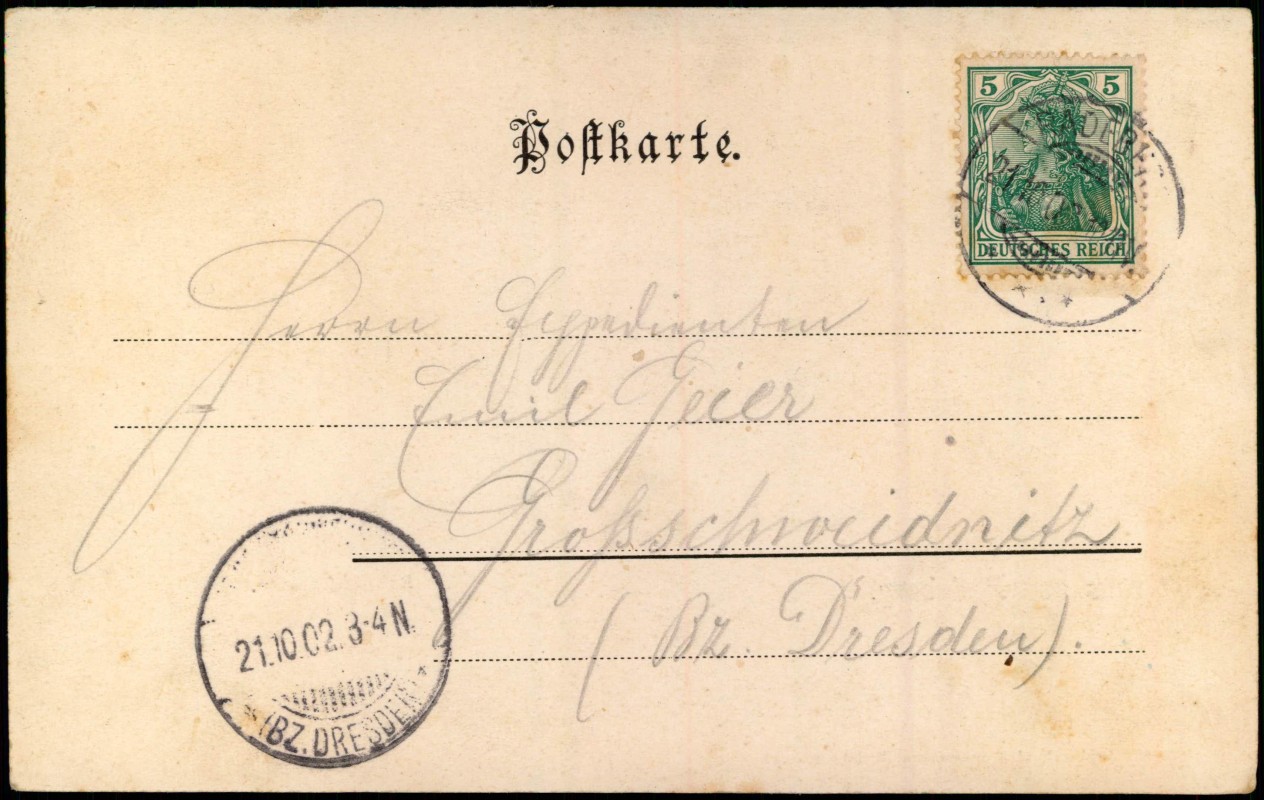 Postkarte.
5 5
DEUTSCHES REICH
Herrn Expedienten
Emil Geier
Großschweidnitz
(Bz. Dresden).
21.10.02. 3-4 N.
(BZ. DRESDEN)